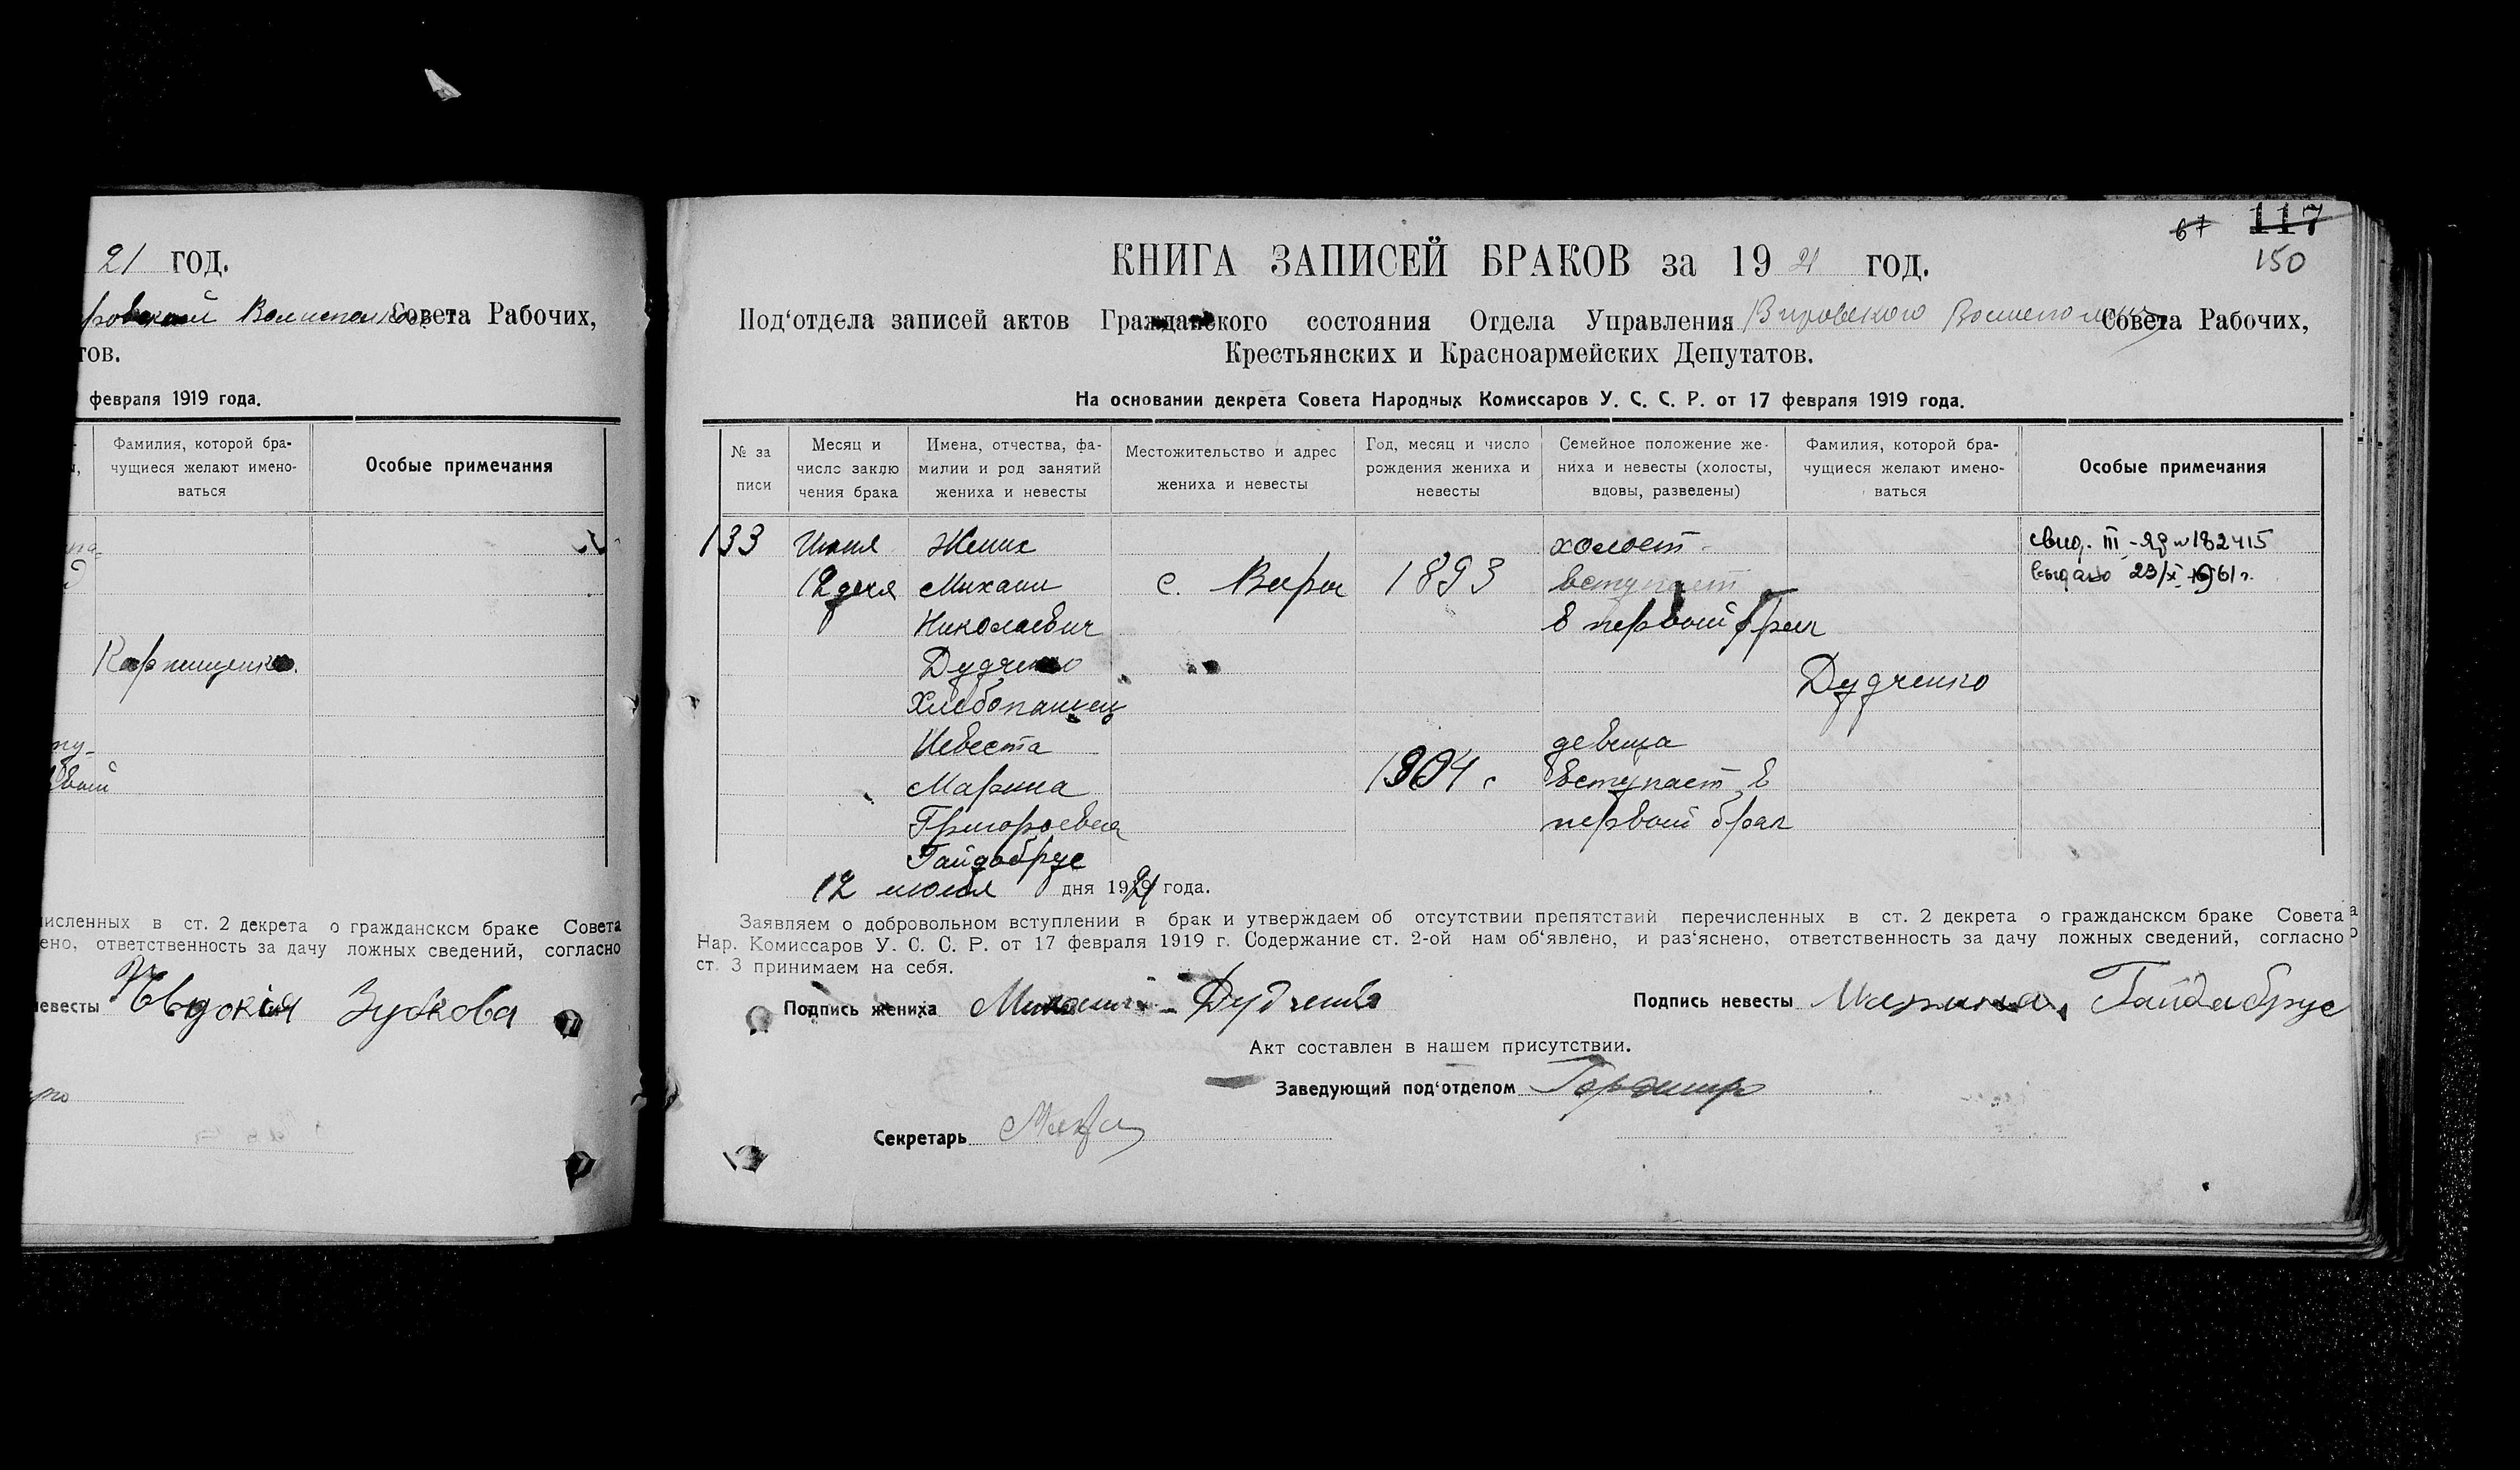 21 год.
Совета Рабочих,
тов.
февраля 1919 года.
Фамилия, которой бра-
чущиеся желают имено-
ваться
Особые примечания
Карпищенко.
исленных в ст. 2 декрета о гражданском браке Совета
ено, ответственность за дачу ложных сведений, согласно
невесты Евдокія Зубкова
67 117
150
КНИГА ЗАПИСЕЙ БРАКОВ за 1921 год.
Под‘отдела записей актов Гражданского состояния Отдела Управления Вировского Волисполкома Совета Рабочих,
Крестьянских и Красноармейских Депутатов.
На основании декрета Совета Народных Комиссаров У. С. С. Р. от 17 февраля 1919 года.
№ за
писи
Месяц и
число заклю
чения брака
Имена, отчества, фа-
милии и род занятий
жениха и невесты
Местожительство и адрес
жениха и невесты
Год, месяц и число
рождения жениха и
невесты
Семейное положение же-
ниха и невесты (холосты,
вдовы, разведены)
Фамилия, которой бра-
чущиеся желают имено-
ваться
Особые примечания
133 Июля Жених холост свид. III-ЯР № 182415
12 дня Михаил с. Виры 1893 вступает выдано 23/X 1961 г.
Николаевич в первый брак
Дудченко
Дудченко
Хлебопашец
Невеста девица
Марина 1904 г вступает в
Григорьевна первый брак
Гайдабрус
12 июля дня 1921 года.
Заявляем о добровольном вступлении в брак и утверждаем об отсутствии препятствий перечисленных в ст. 2 декрета о гражданском браке Совета
Нар. Комиссаров У. С. С. Р. от 17 февраля 1919 г. Содержание ст. 2-ой нам об‘явлено, и раз‘яснено, ответственность за дачу ложных сведений, согласно
ст. 3 принимаем на себя.
Подпись жениха Михаил Дудченко Подпись невесты Марина Гайдабрус
Акт составлен в нашем присутствии.
Заведующий под‘отделом
Секретарь